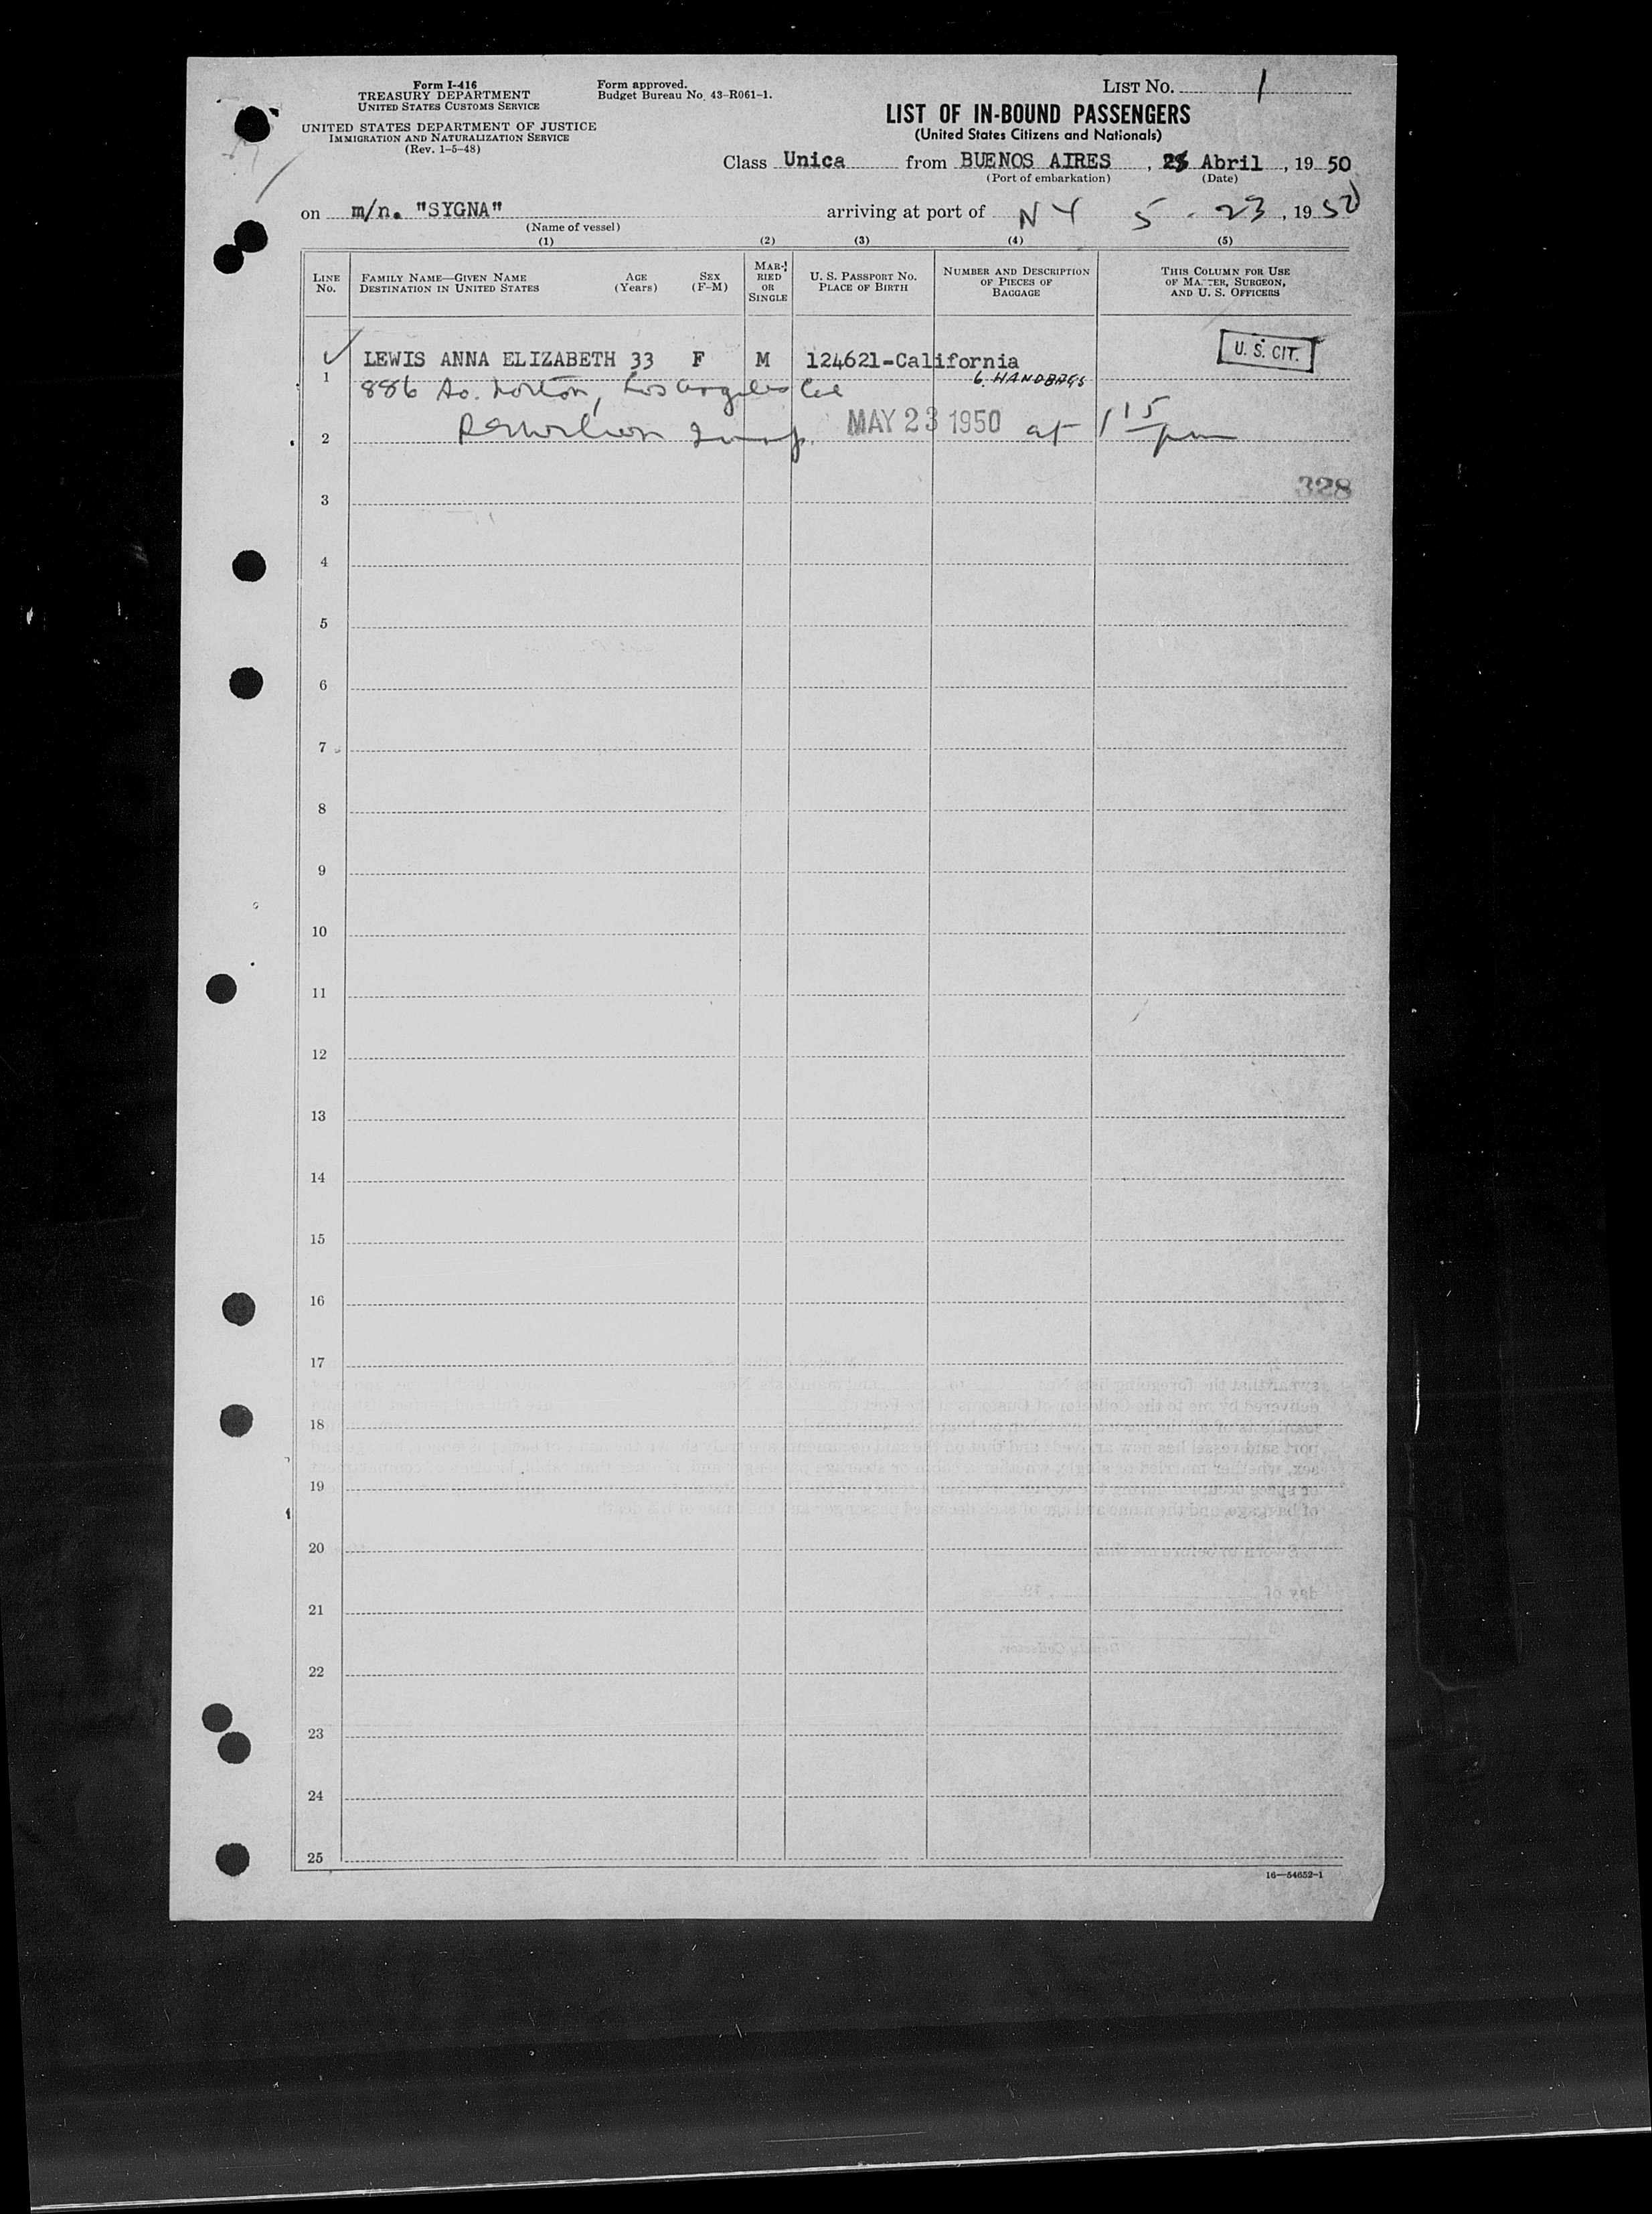 Form I-416
TREASURY DEPARTMENT
UNITED STATES CUSTOMS SERVICE
UNITED STATES DEPARTMENT OF JUSTICE
IMMIGRATION AND NATURALIZATION SERVICE
(Rev. 1-5-48)
Form approved.
Budget Bureau No. 43-R061-1.
LIST NO. 1
LIST OF IN-BOUND PASSENGERS
(United States Citizens and Nationals)
Class Unica from BUENOS AIRES, Abril, 1950
(Port of embarkation) (Date)
on m/n. "SYGNA" arriving at port of NY 5-23, 1950
(Name of vessel)
(1) (2) (3) (4) (5)
LINE No.
FAMILY NAME—GIVEN NAME
DESTINATION IN UNITED STATES
AGE (Years)
SEX (F-M)
MARRIED OR SINGLE
U. S. PASSPORT NO.
PLACE OF BIRTH
NUMBER AND DESCRIPTION
OF PIECES OF
BAGGAGE
THIS COLUMN FOR USE
OF MASTER, SURGEON,
AND U. S. OFFICERS
LEWIS ANNA ELIZABETH 33 F M 124621-California
U. S. CIT.
1 886 So. Norton, Los Angeles Cal 6 HANDBAGS
2 MAY 23 1950 at 1 15 pm
328
3
4
5
6
7
8
9
10
11
12
13
14
15
16
17
18
19
20
21
22
23
24
25
16—54652-1